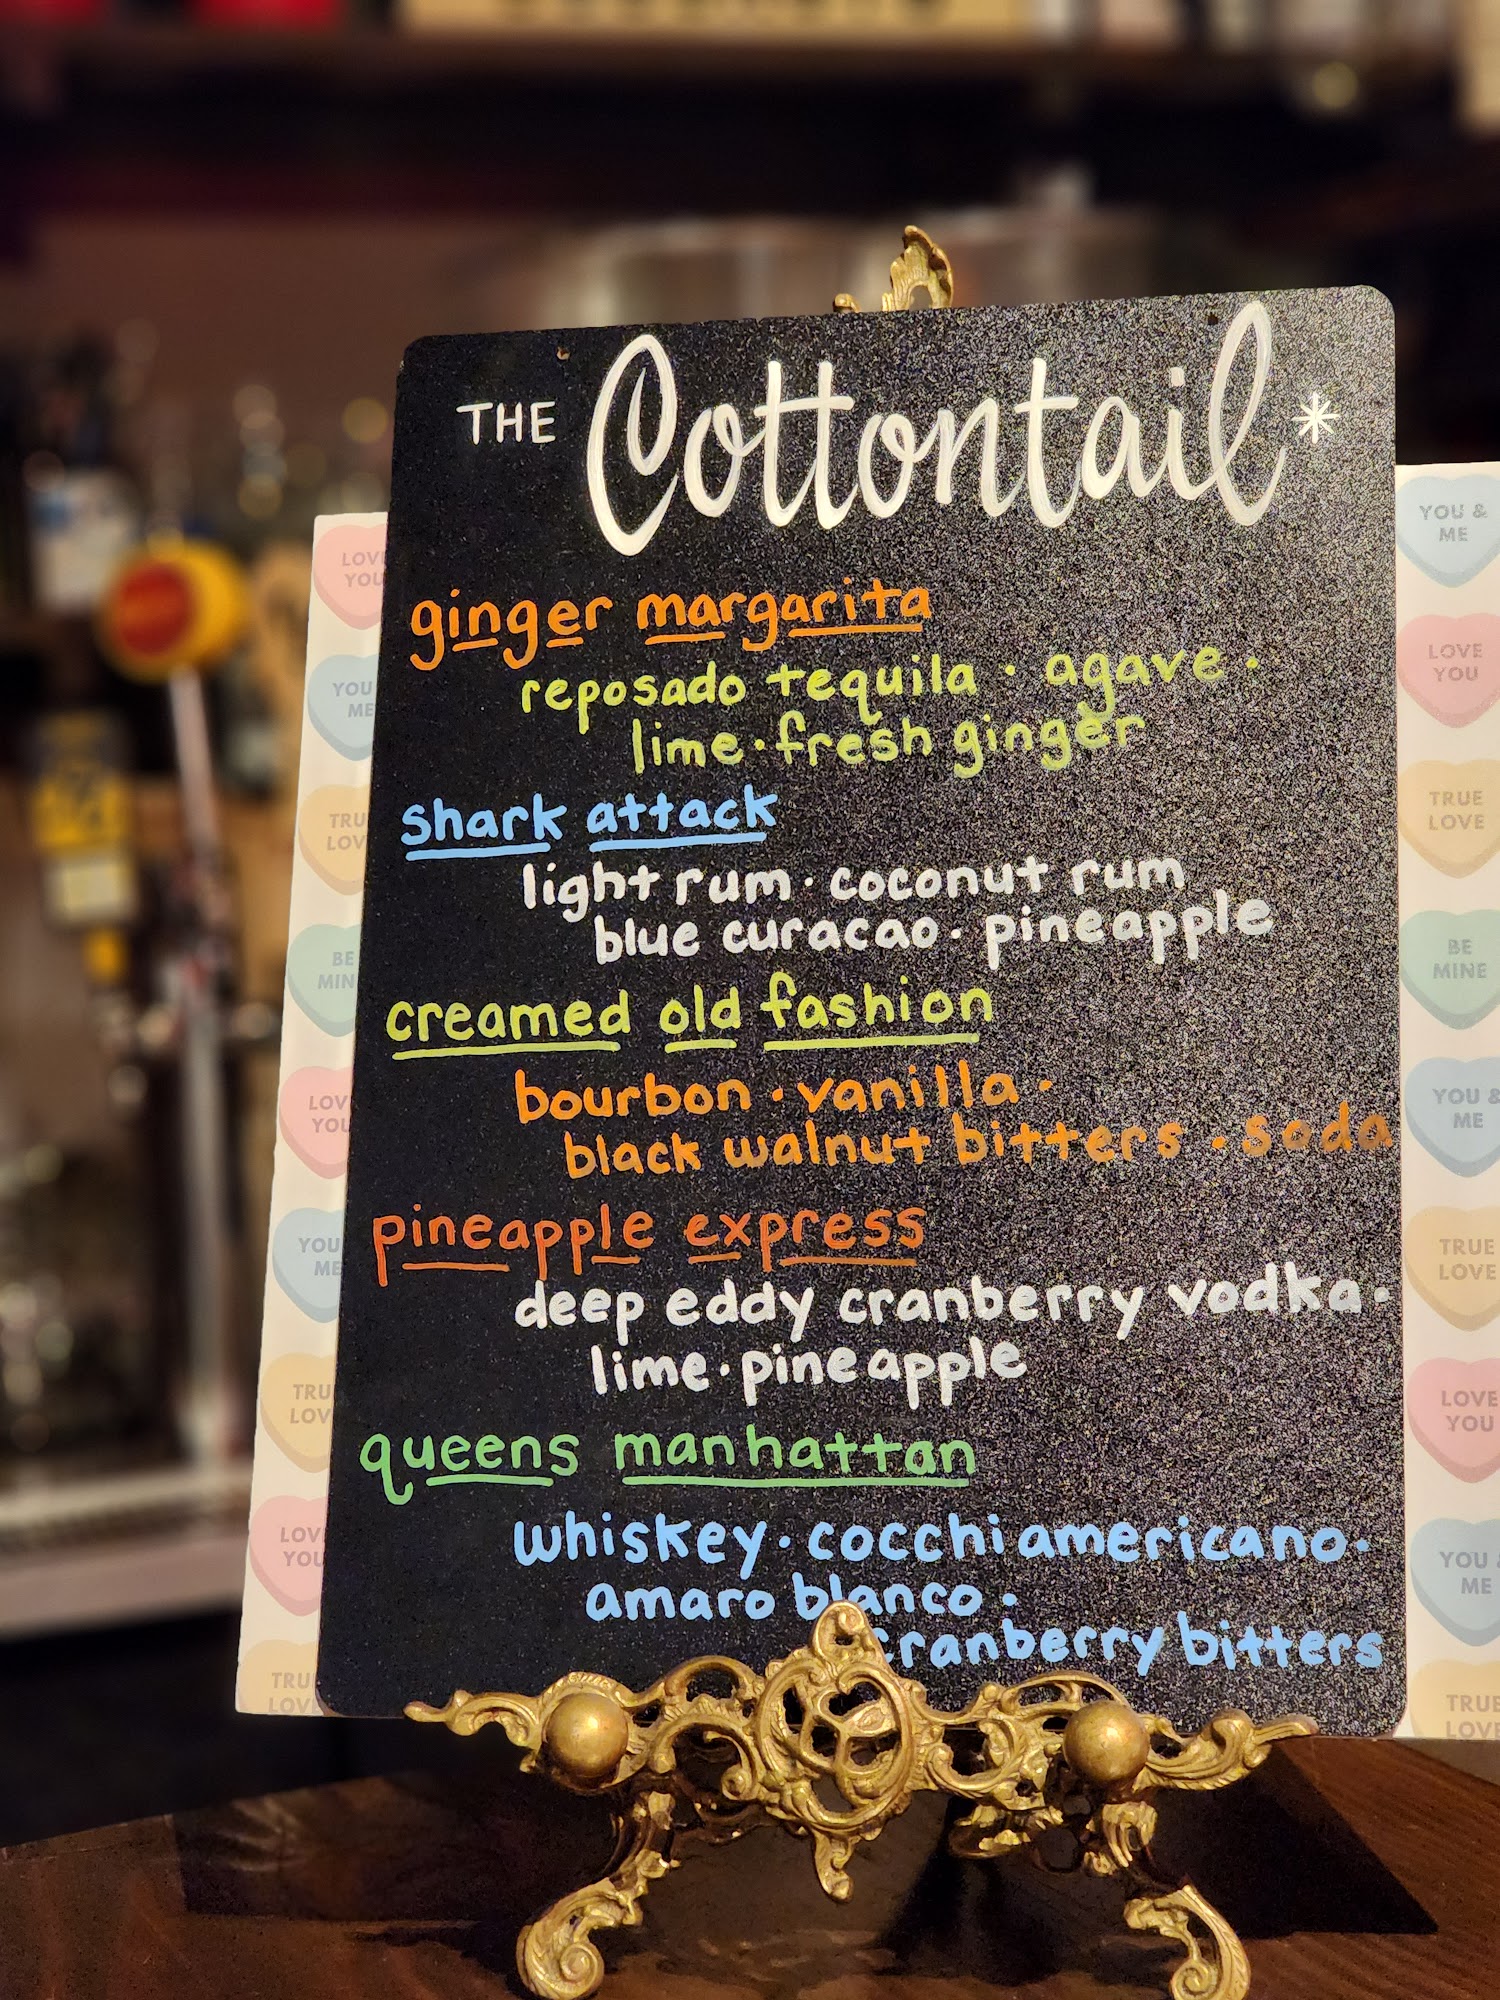 THE Cottontail *
ginger margarita
reposado tequila · agave ·
lime · fresh ginger
shark attack
light rum · coconut rum
blue curacao · pineapple
creamed old fashion
bourbon · vanilla ·
black walnut bitters · soda
pineapple express
deep eddy cranberry vodka ·
lime · pineapple
queens manhattan
whiskey · cocchi americano ·
amaro blanco ·
cranberry bitters
LOVE
YOU
YOU
ME
TRU
LOV
BE
MIN
LOV
YOU
YOU
ME
TRU
LOV
LOV
YOU
TRU
LOV
YOU &
ME
LOVE
YOU
TRUE
LOVE
BE
MINE
YOU &
ME
TRUE
LOVE
LOVE
YOU
YOU
ME
TRUE
LOV